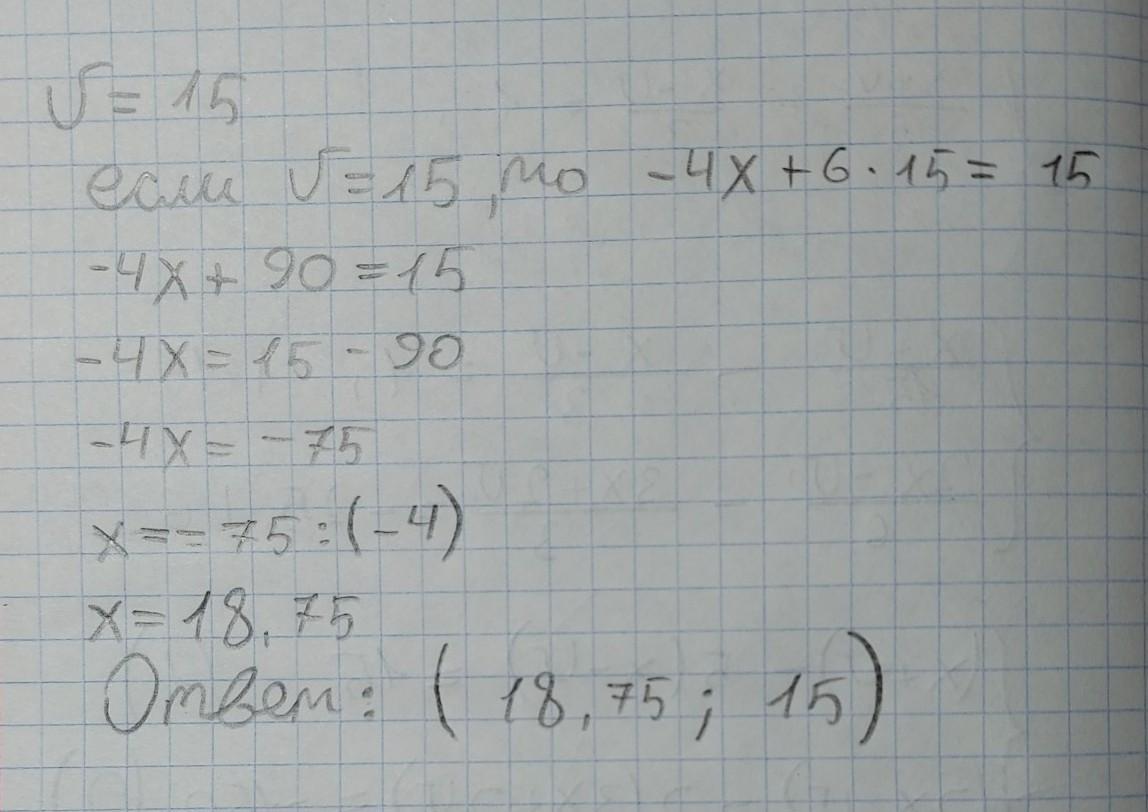 υ = 15
если υ = 15, то -4x + 6 · 15 = 15
-4x + 90 = 15
-4x = 15 - 90
-4x = -75
x = -75 : (-4)
x = 18,75
Ответ: (18,75; 15)